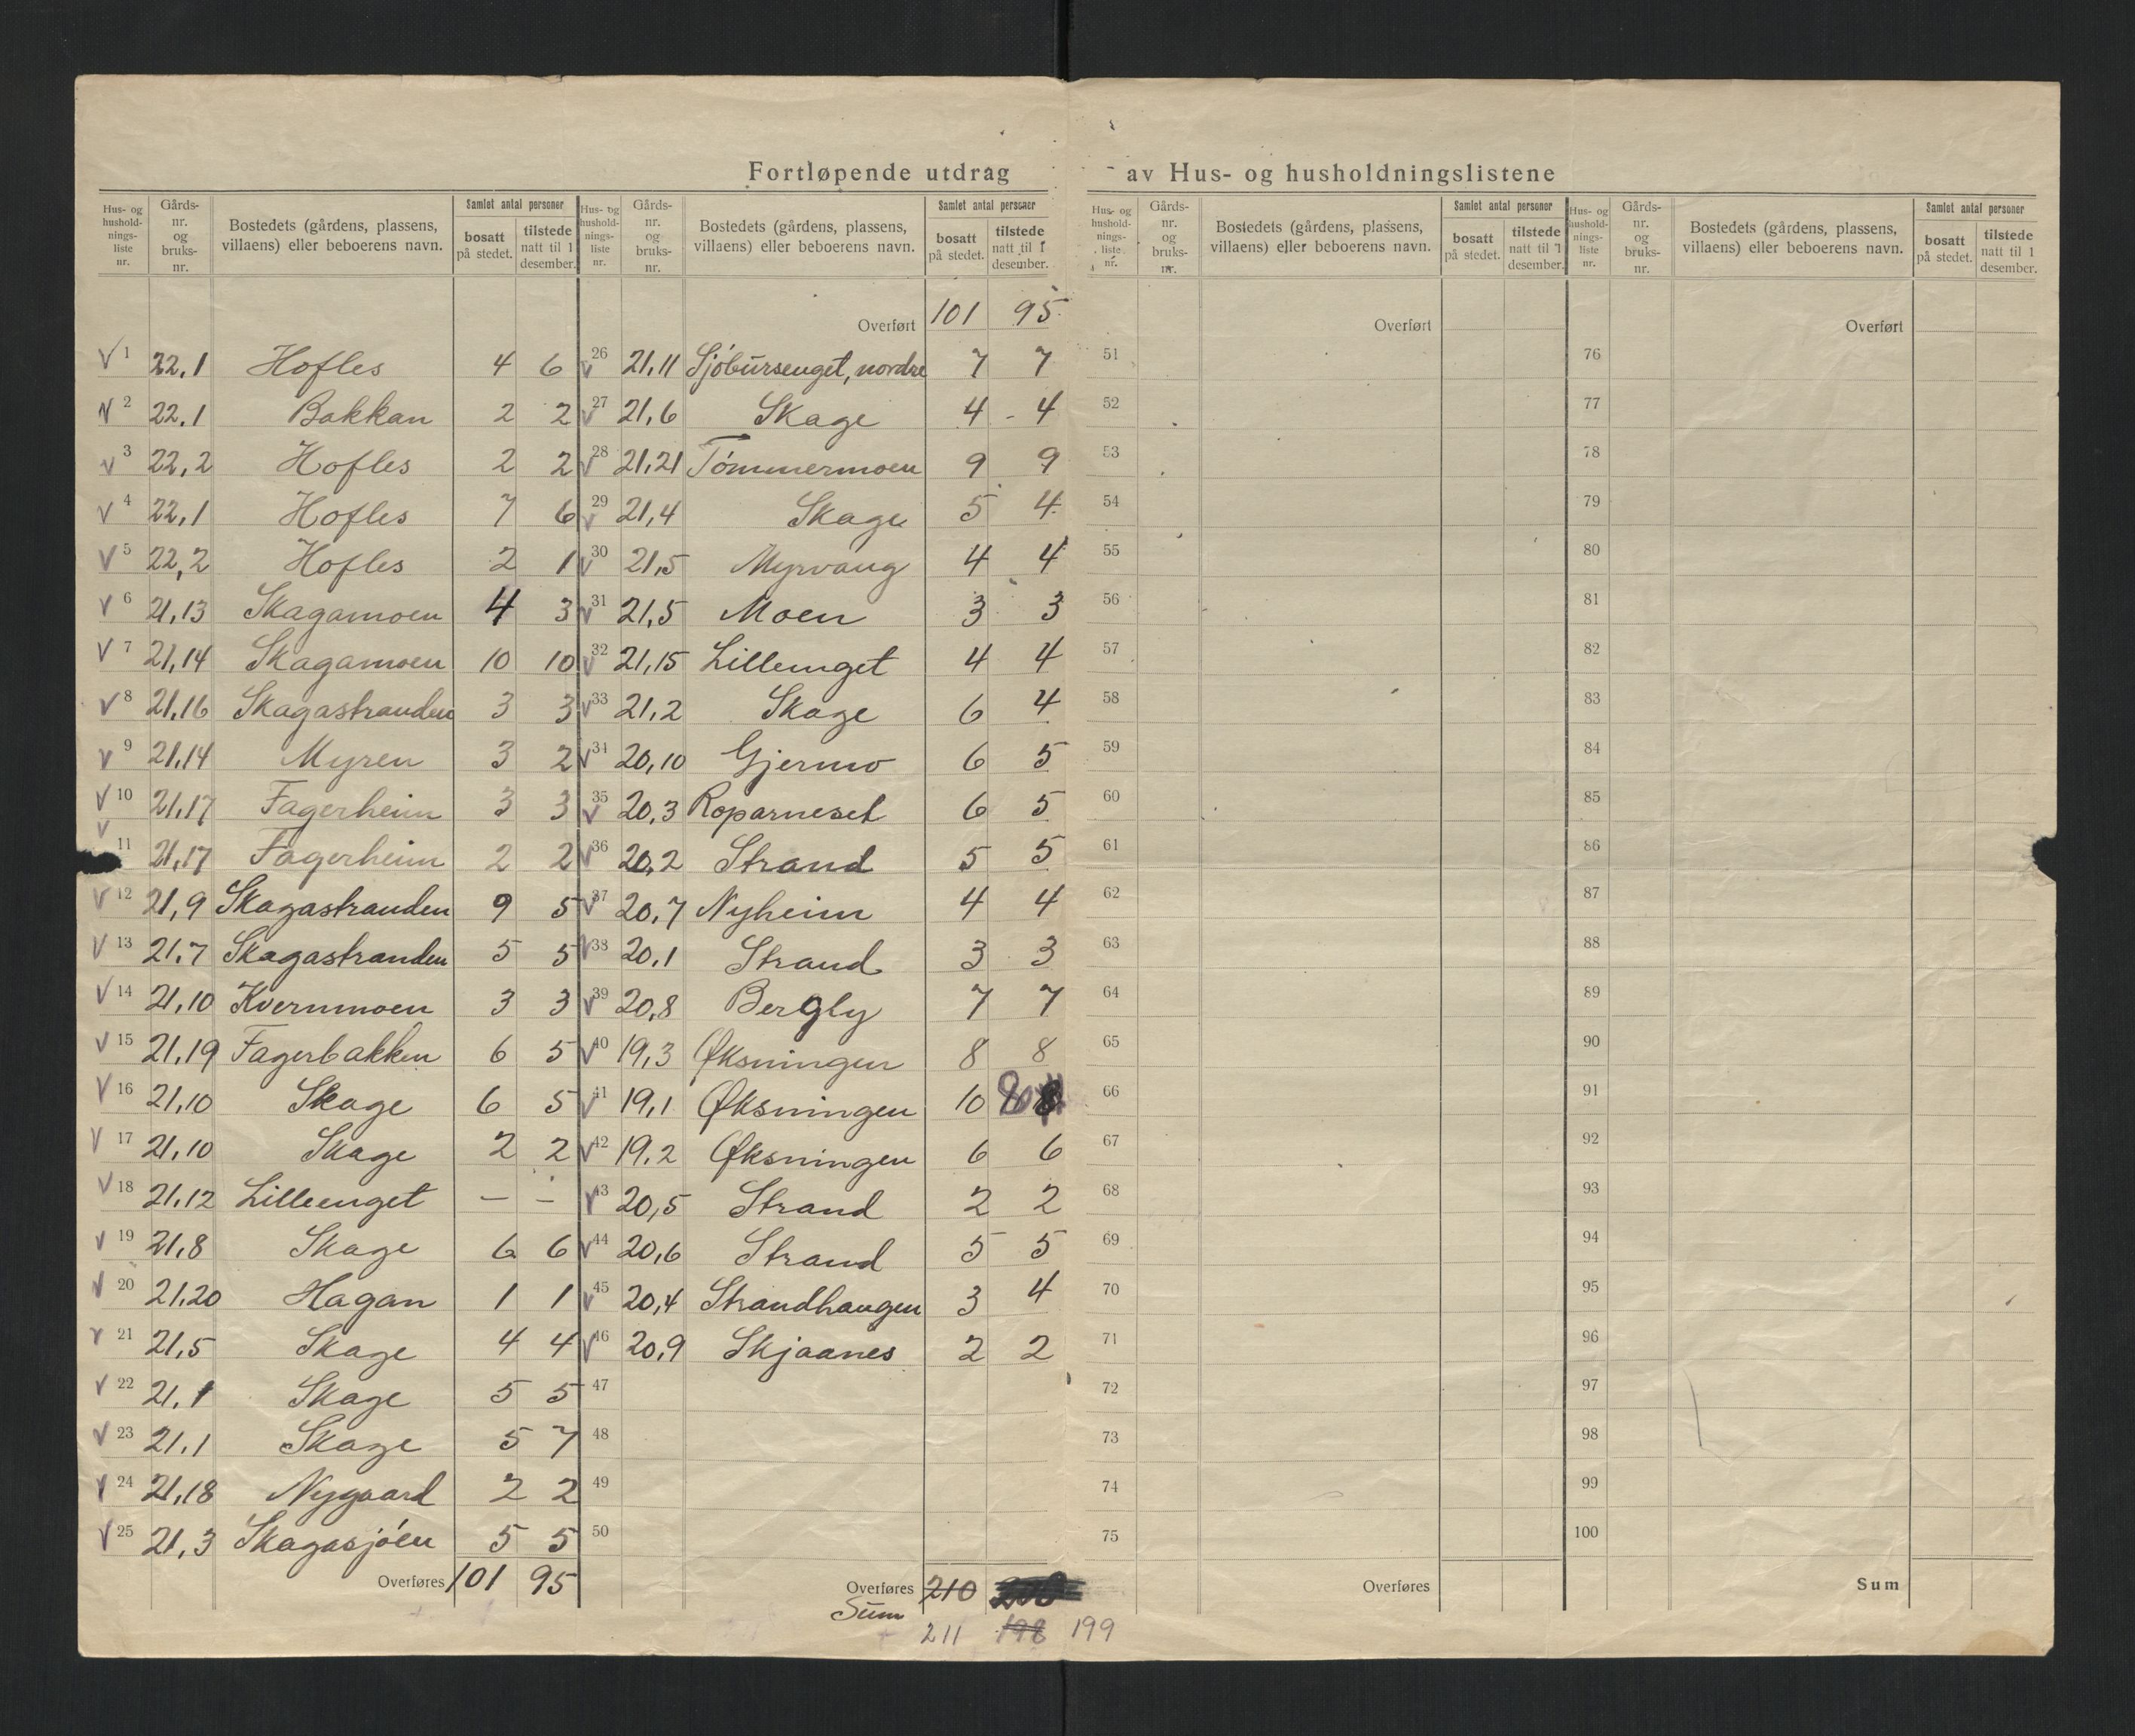 Fortløpende utdrag av Hus- og husholdningslistene
Hus- og hushold-nings-liste nr. Gårds-nr. og bruks-nr. Bostedets (gårdens, plassens, villaens) eller beboerens navn. Samlet antal personer bosatt på stedet. tilstede natt til 1 desember.
V 1 22,1 Hofles 4 6
V 2 22,1 Bakkan 2 2
V 3 22,2 Hofles 2 2
V 4 22,1 Hofles 7 6
V 5 22,2 Hofles 2 1
V 6 21,13 Skagamoen 4 3
V 7 21,14 Skagamoen 10 10
V 8 21,16 Skagastranden 3 3
V 9 21,14 Myren 3 2
V 10 21,17 Fagerheim 3 3
V 11 21,17 Fagerheim 2 2
V 12 21,9 Skagastranden 9 5
V 13 21,7 Skagastranden 5 5
V 14 21,10 Kvernmoen 3 3
V 15 21,19 Fagerbakken 6 5
V 16 21,10 Skage 6 5
V 17 21,10 Skage 2 2
V 18 21,12 Lilleenget — —
V 19 21,8 Skage 6 6
V 20 21,20 Hagan 1 1
V 21 21,5 Skage 4 4
V 22 21,1 Skage 5 5
V 23 21,1 Skage 5 7
V 24 21,18 Nygaard 2 2
V 25 21,3 Skagasjöen 5 5
Overføres 101 95
Hus- og hushold-nings-liste nr. Gårds-nr. og bruks-nr. Bostedets (gårdens, plassens, villaens) eller beboerens navn. Samlet antal personer bosatt på stedet. tilstede natt til 1 desember.
Overført 101 95
V 26 21,11 Sjöbursenget, nordre 7 7
V 27 21,6 Skage 4 - 4
V 28 21,21 Tömmermoen 9 9
V 29 21,4 Skage 5 4
V 30 21,5 Myrvang 4 4
V 31 21,5 Moen 3 3
V 32 21,15 Lillenget 4 4
V 33 21,2 Skage 6 4
V 34 20,10 Gjermo 6 5
V 35 20,3 Roparneset 6 5
V 36 20,2 Strand 5 5
V 37 20,7 Nyheim 4 4
V 38 20,1 Strand 3 3
V 39 20,8 Bergly 7 7
V 40 19,3 Øksningen 8 8
V 41 19,1 Øksningen 10 8
V 42 19,2 Øksningen 6 6
V 43 20,5 Strand 2 2
V 44 20,6 Strand 5 5
V 45 20,4 Strandhaugen 3 4
V 46 20,9 Skjaanes 2 2
47
48
49
50
Overføres 210
Sum
211 198 199
Hus- og hushold-nings-liste nr. Gårds-nr. og bruks-nr. Bostedets (gårdens, plassens, villaens) eller beboerens navn. Samlet antal personer bosatt på stedet. tilstede natt til 1 desember.
Overført
51
52
53
54
55
56
57
58
59
60
61
62
63
64
65
66
67
68
69
70
71
72
73
74
75
Overføres
Hus- og hushold-nings-liste nr. Gårds-nr. og bruks-nr. Bostedets (gårdens, plassens, villaens) eller beboerens navn. Samlet antal personer bosatt på stedet. tilstede natt til 1 desember.
Overført
76
77
78
79
80
81
82
83
84
85
86
87
88
89
90
91
92
93
94
95
96
97
98
99
100
Sum